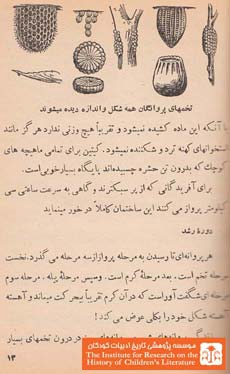 تخمهای پروانگان همه شکل و اندازه دیده میشوند
با آنکه این ماده کشیده نمیشود و تقریباً هیچ وزنی ندارد هرگز مانند
استخوانهای کهنه ترد و شکننده نمیشود. کیتین برای تمامی ماهیچه های
کوچك که بدون تن حشره چسبیده‌اند پایگاه بسیار خوبی است.
برای آفریدگانی که از پر سبکترند و گاهی به سرعت ساعتی سی
کیلومتر پرواز می کنند این ساختمان کاملاً در خور مینماید
دورهٔ رشد
هر پروانه‌ای تا رسیدن به مرحله پرواز از سه مرحله می گذرد. نخست
مرحله تخم است. بعد مرحلهٔ کرم است. وسپس مرحلهٔ پیله. مرحله سوم
مرحله ای شگفت‌آور است که در آن کرم تقریباً بیحرکت میماند و آهسته
آهسته شکل خود را بکلی عوض می کند!
در درون تخمهای بسیار
۱۳
موسسه پژوهشی تاریخ ادبیات کودکان
The Institute for Research on the
History of Children's Literature